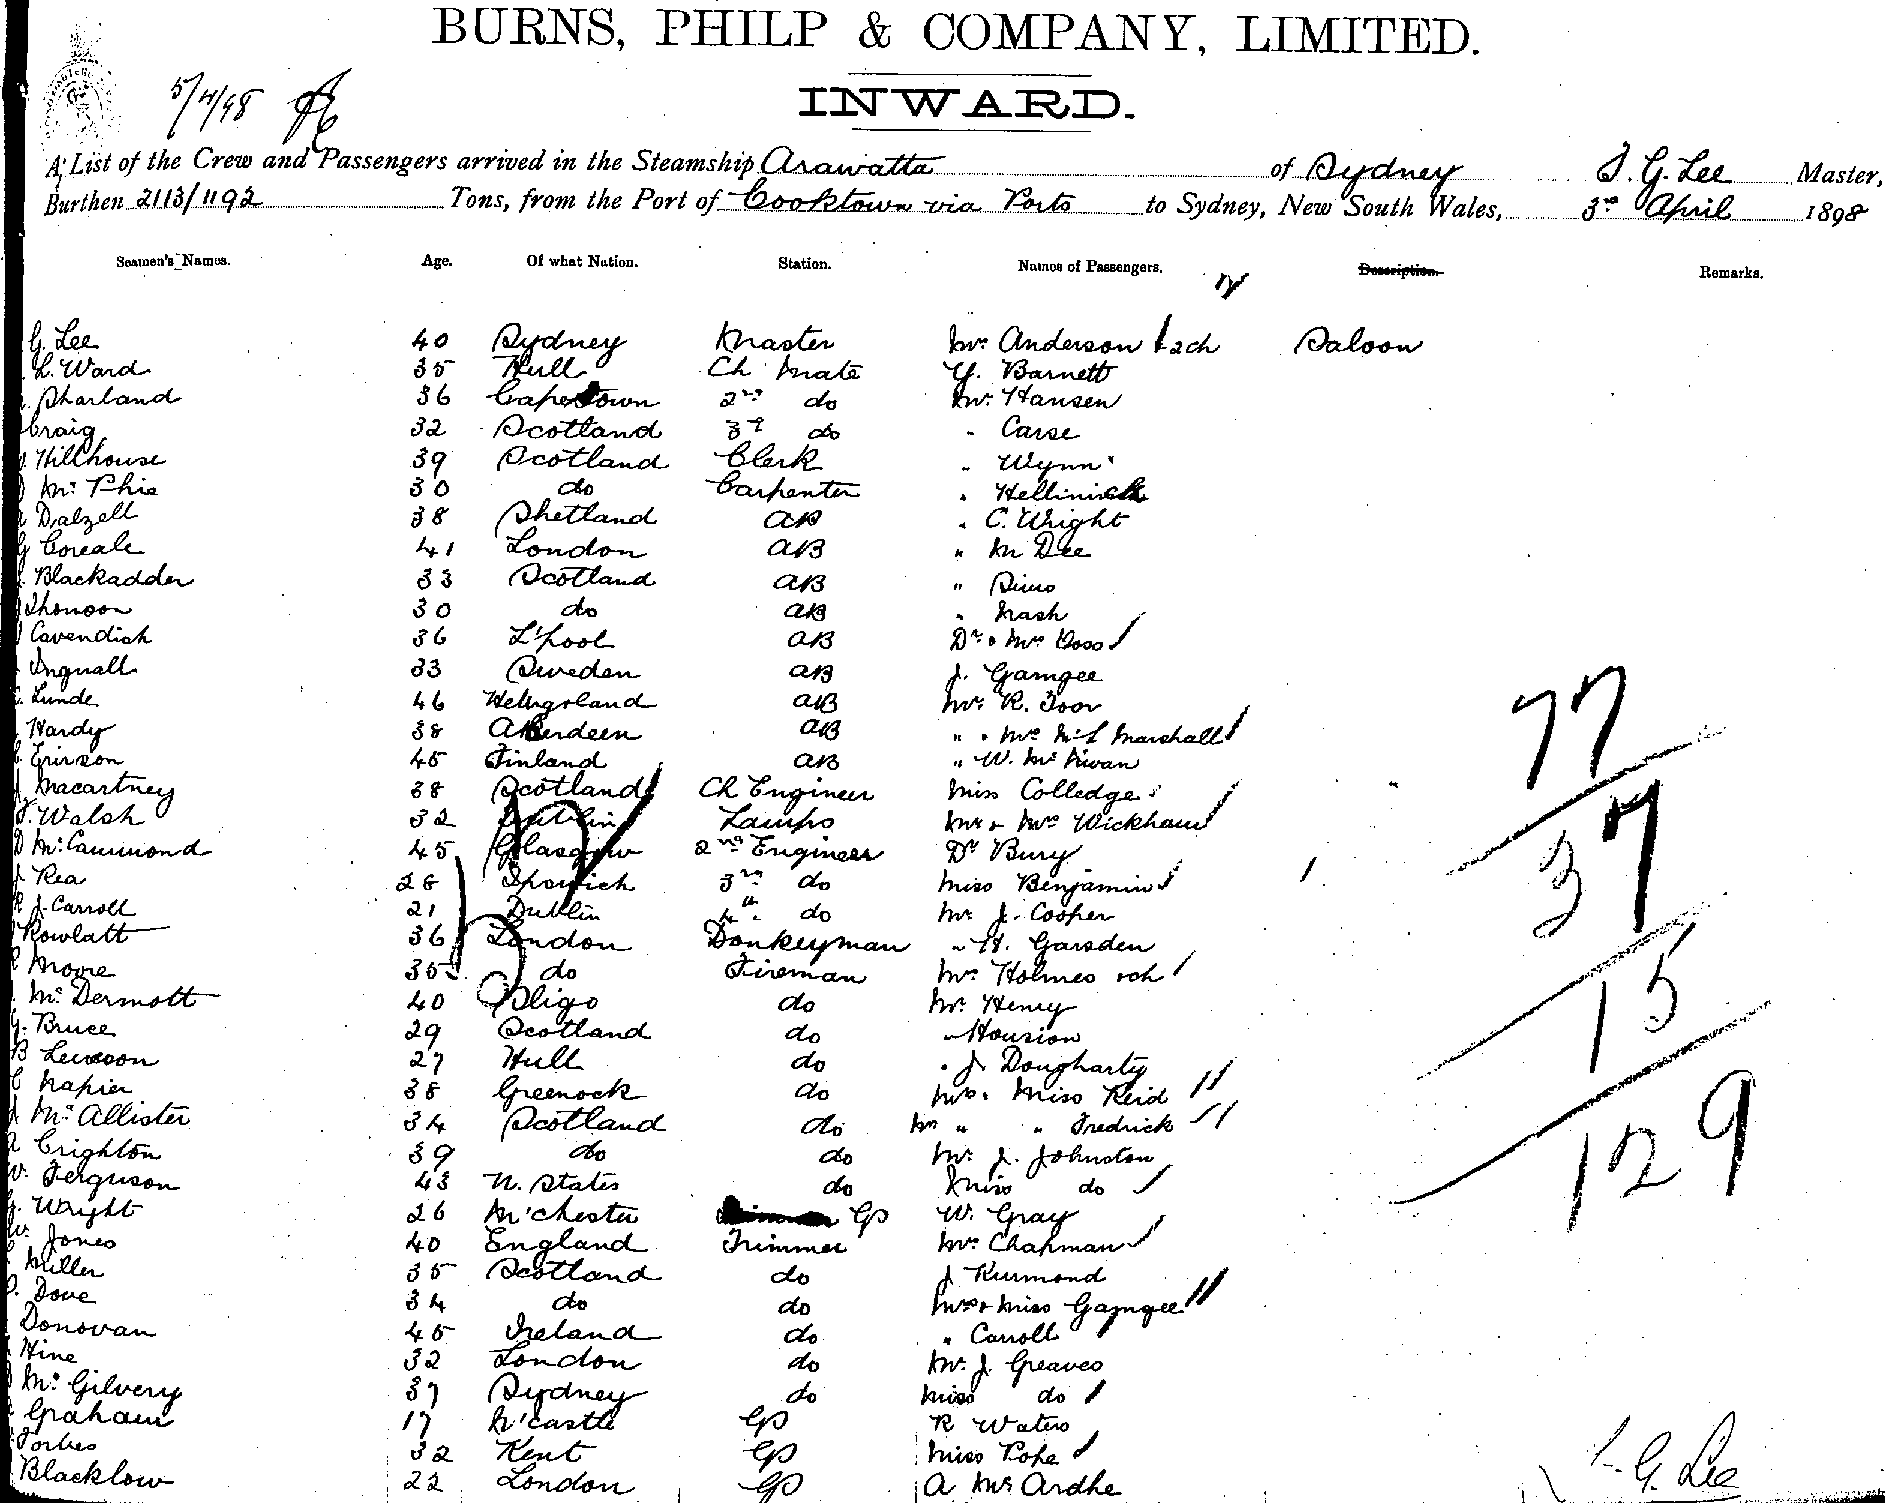 BURNS, PHILP & COMPANY, LIMITED.
5/4/98
INWARD.
A List of the Crew and Passengers arrived in the Steamship Arawatta of Sydney T. G. Lee Master,
Burthen 2113/1192 Tons, from the Port of Cooktown via Ports to Sydney, New South Wales, 3rd April 1898
Seamen's Names. Age. Of what Nation. Station. Names of Passengers. Description. Remarks.
G. Lee 40 Sydney Master Mrs Anderson & 2 ch Saloon
L. Ward 35 Hull Ch Mate Y. Barnett
Sharland 36 Capetown 2nd do Mr. Hansen
Craig 32 Scotland 3rd do " Carse
Hillhouse 39 Scotland Clerk " Wynn
McPhie 30 do Carpenter
Dalzell 38 Shetland AB " C. Wright
Coreale 41 London AB " M Dee
Blackadder 33 Scotland AB " Sims
Thomson 30 do AB " Nash
Cavendish 36 L'pool AB Dr & Mrs Voss
Ingnall 33 Sweden AB J. Gamgee
Lunde 46 Heligoland AB Mr R. Toor
Hardy 38 Aberdeen AB " & Mrs Marshall
Ericson 45 Finland AB " W. McKivan
Macartney 38 Scotland Ch Engineer Miss Colledge
T. Walsh 32 Dublin Lamps Mr & Mrs Wickham
D McCammond 45 Glasgow 2nd Engineer Dr Bury
J Rea 28 Ipswich 3rd do Miss Benjamin
R J. Carroll 21 Dublin 4th do Mr J. Cooper
Rowlatt 36 London Donkeyman " H. Garsden
Moore 35 do Fireman Mrs Holmes & ch
McDermott 40 Sligo do Mr. Henry
G. Bruce 29 Scotland do " Housion
B Lewson 27 Hull do " J. Dougharty
C Napier 38 Greenock do Mrs & Miss Reid
J McAllister 34 Scotland do Mrs " " Fredrick
A Crighton 39 do do Mr J. Johnston
W. Ferguson 43 U. States do Miss do
G. Wright 26 M'chester GP W. Gray
W. Jones 40 England Trimmer Mrs Chapman
Miller 35 Scotland do J Kurmond
D. Dove 34 do do Mrs & Miss Gamgee
Donovan 45 Ireland do " Carroll
Hine 32 London do Mr. J. Greaves
McGilvery 37 Sydney do Miss do
Graham 17 N'castle GP R Waters
Forbes 32 Kent GP Miss Pope
Blacklow 22 London GP A McArdhe
77
37
15
129
T. G. Lee